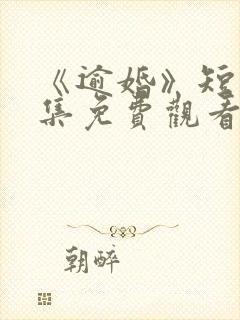 《逾婚》短
集免費觀看
朝醉